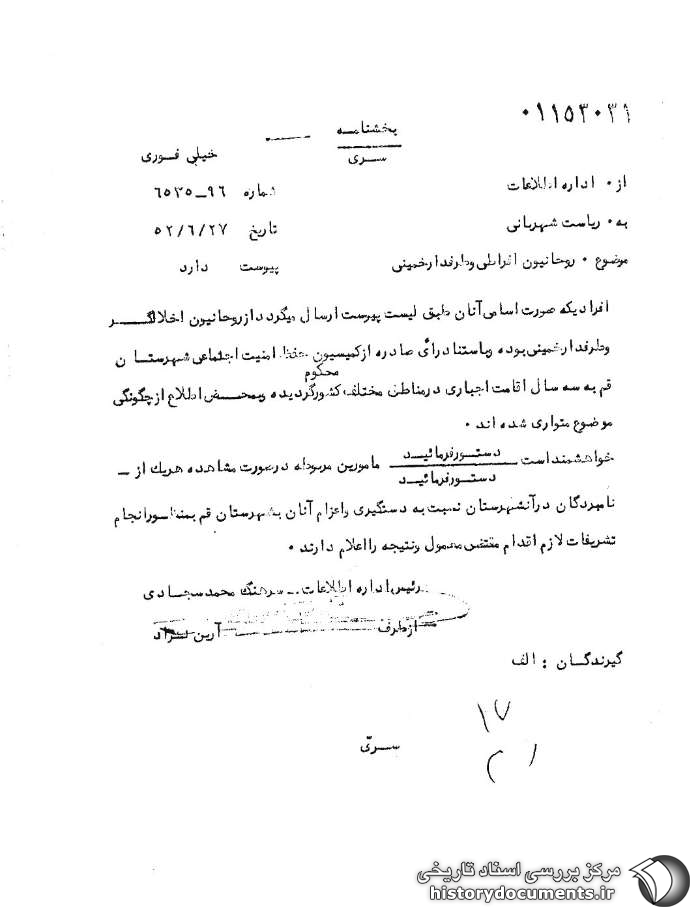 ۰۱۱۵۳۰۳۱
بخشنامه
سری
خیلی فوری
از ۰ اداره اطلاعات
شماره ۹۶-۶۵۳۵
به ۰ ریاست شهربانی
تاریخ ۵۲/۶/۲۷
موضوع ۰ روحانیون افراطی وطرفدارخمینی
پیوست دارد
افرادیکه صورت اسامی آنان طبق لیست پیوست ارسال میگردد ازروحانیون اخلالگر
وطرفدارخمینی بوده وباستناد رأی صادره ازکمیسیون حفظ امنیت اجتماعی شهرستان
قم به سه سال اقامت اجباری درمناطق مختلف کشور محکوم گردیده وبمحض اطلاع ازچگونگی
موضوع متواری شده اند ۰
خواهشمنداست دستورفرمائید مامورین مربوطه درصورت مشاهده هریک از -
دستورفرمائید
نامبردگان درآنشهرستان نسبت به دستگیری واعزام آنان بشهرستان قم بمنظورانجام
تشریفات لازم اقدام مقتضی معمول ونتیجه رااعلام دارند ۰
رئیس اداره اطلاعات - سرهنگ محمدسجادی
ازطرف آرین نژاد
گیرندگان : الف
۱۷
سرّی
مرکز بررسی اسناد تاریخی
historydocuments.ir